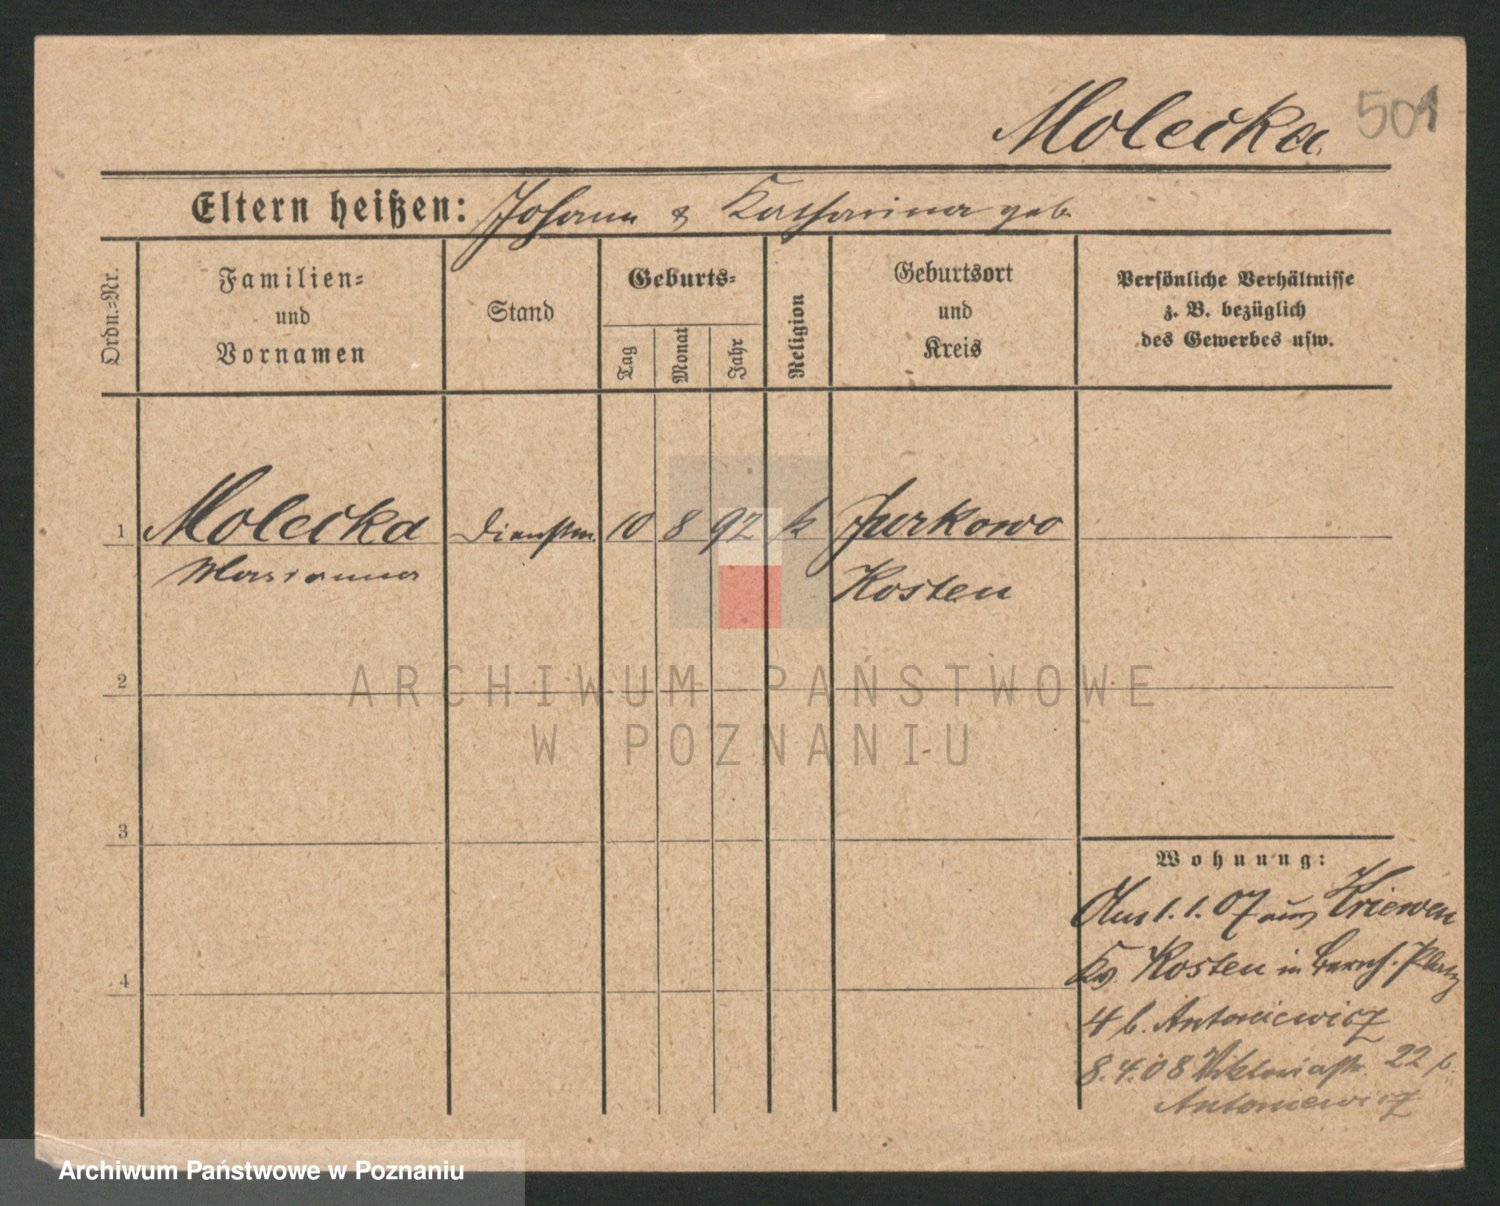 Molecka 501
Eltern heißen: Johann & Katharina geb.
Ordn.-Nr.
Familien-
und
Vornamen
Stand
Geburts-
Tag
Monat
Jahr
Religion
Geburtsort
und
Kreis
Persönliche Verhältnisse
z. B. bezüglich
des Gewerbes usw.
1 Molecka Dienstm. 10 8 92 k Jurkowo
Marianna Kosten
2
ARCHIWUM PAŃSTWOWE
W POZNANIU
3
Wohnung:
Am 1.1.07 aus Kriewen
Kr. Kosten in Bernh. Platz
4 b. Antoniewicz
8.4.08 Viktoriastr. 22 b.
Antoniewicz
4
Archiwum Państwowe w Poznaniu